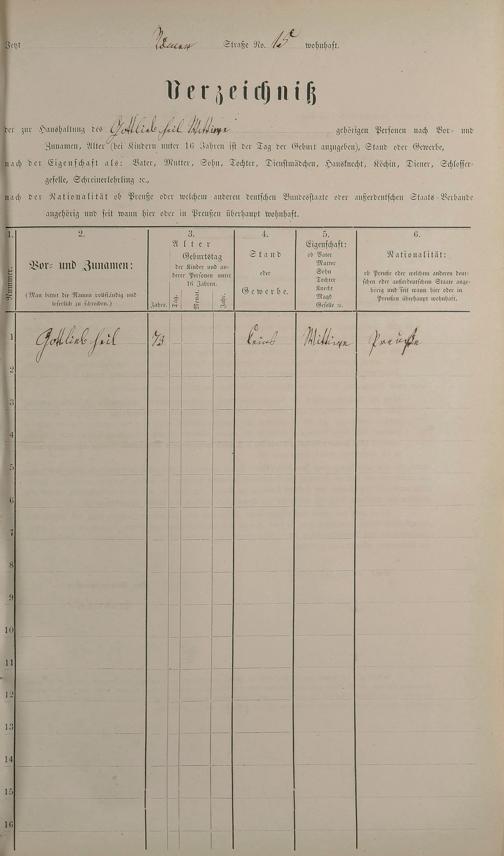 Jetzt Straße No. 15 wohnhaft.
Verzeichniß
der zur Haushaltung des Gottlieb Heil Wittwe gehörigen Personen nach Vor- und
Zunamen, Alter (bei Kindern unter 16 Jahren ist der Tag der Geburt anzugeben), Stand oder Gewerbe,
nach der Eigenschaft als: Vater, Mutter, Sohn, Tochter, Dienstmädchen, Hausknecht, Köchin, Diener, Schlosser-
geselle, Schreinerlehrling ꝛc.,
nach der Nationalität ob Preuße oder welchem anderen deutschen Bundesstaate oder außerdeutschen Staats-Verbande
angehörig und seit wann hier oder in Preußen überhaupt wohnhaft.
1.
Nummer.
2.
Vor- und Zunamen:
(Man bittet die Namen vollständig und
leserlich zu schreiben.)
3.
Alter
Geburtstag
der Kinder und an-
derer Personen unter
16 Jahren.
Jahre. Tag. Monat. Jahr.
4.
Stand
oder
Gewerbe.
5.
Eigenschaft:
ob Vater
Mutter
Sohn
Tochter
Knecht
Magd
Geselle ꝛc.
6.
Nationalität:
ob Preuße oder welchem anderen deut-
schen oder außerdeutschen Staate ange-
hörig und seit wann hier oder in
Preußen überhaupt wohnhaft.
1 Gottlieb Heil 73 Wittwe Preuße
2
3
4
5
6
7
8
9
10
11
12
13
14
15
16